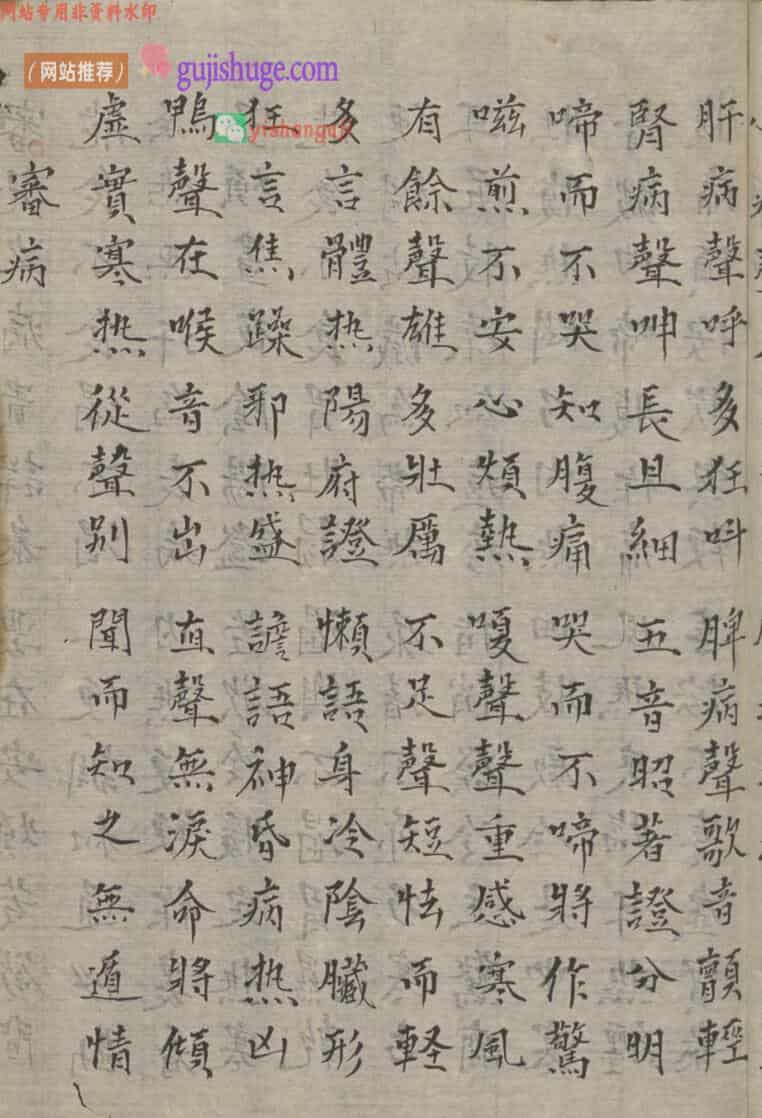 网站专用非资料水印
（网站推荐）
gujishuge.com
yishanguji
肝病聲呼多狂呌 脾病聲歌音顫輕
腎病聲呻長且細 五音昭著證分明
啼而不哭知腹痛 哭而不啼將作驚
嗞煎不安心煩熱 嗄聲聲重感寒風
有餘聲雄多壯厲 不足聲短怯而軽
多言體热陽府證 懶語身冷陰臟形
狂言焦躁邪热盛 譫語神昏病热凶
鴨聲在喉音不出 直聲無淚命將傾
虛實寒热從聲别 聞而知之無遁情
審病